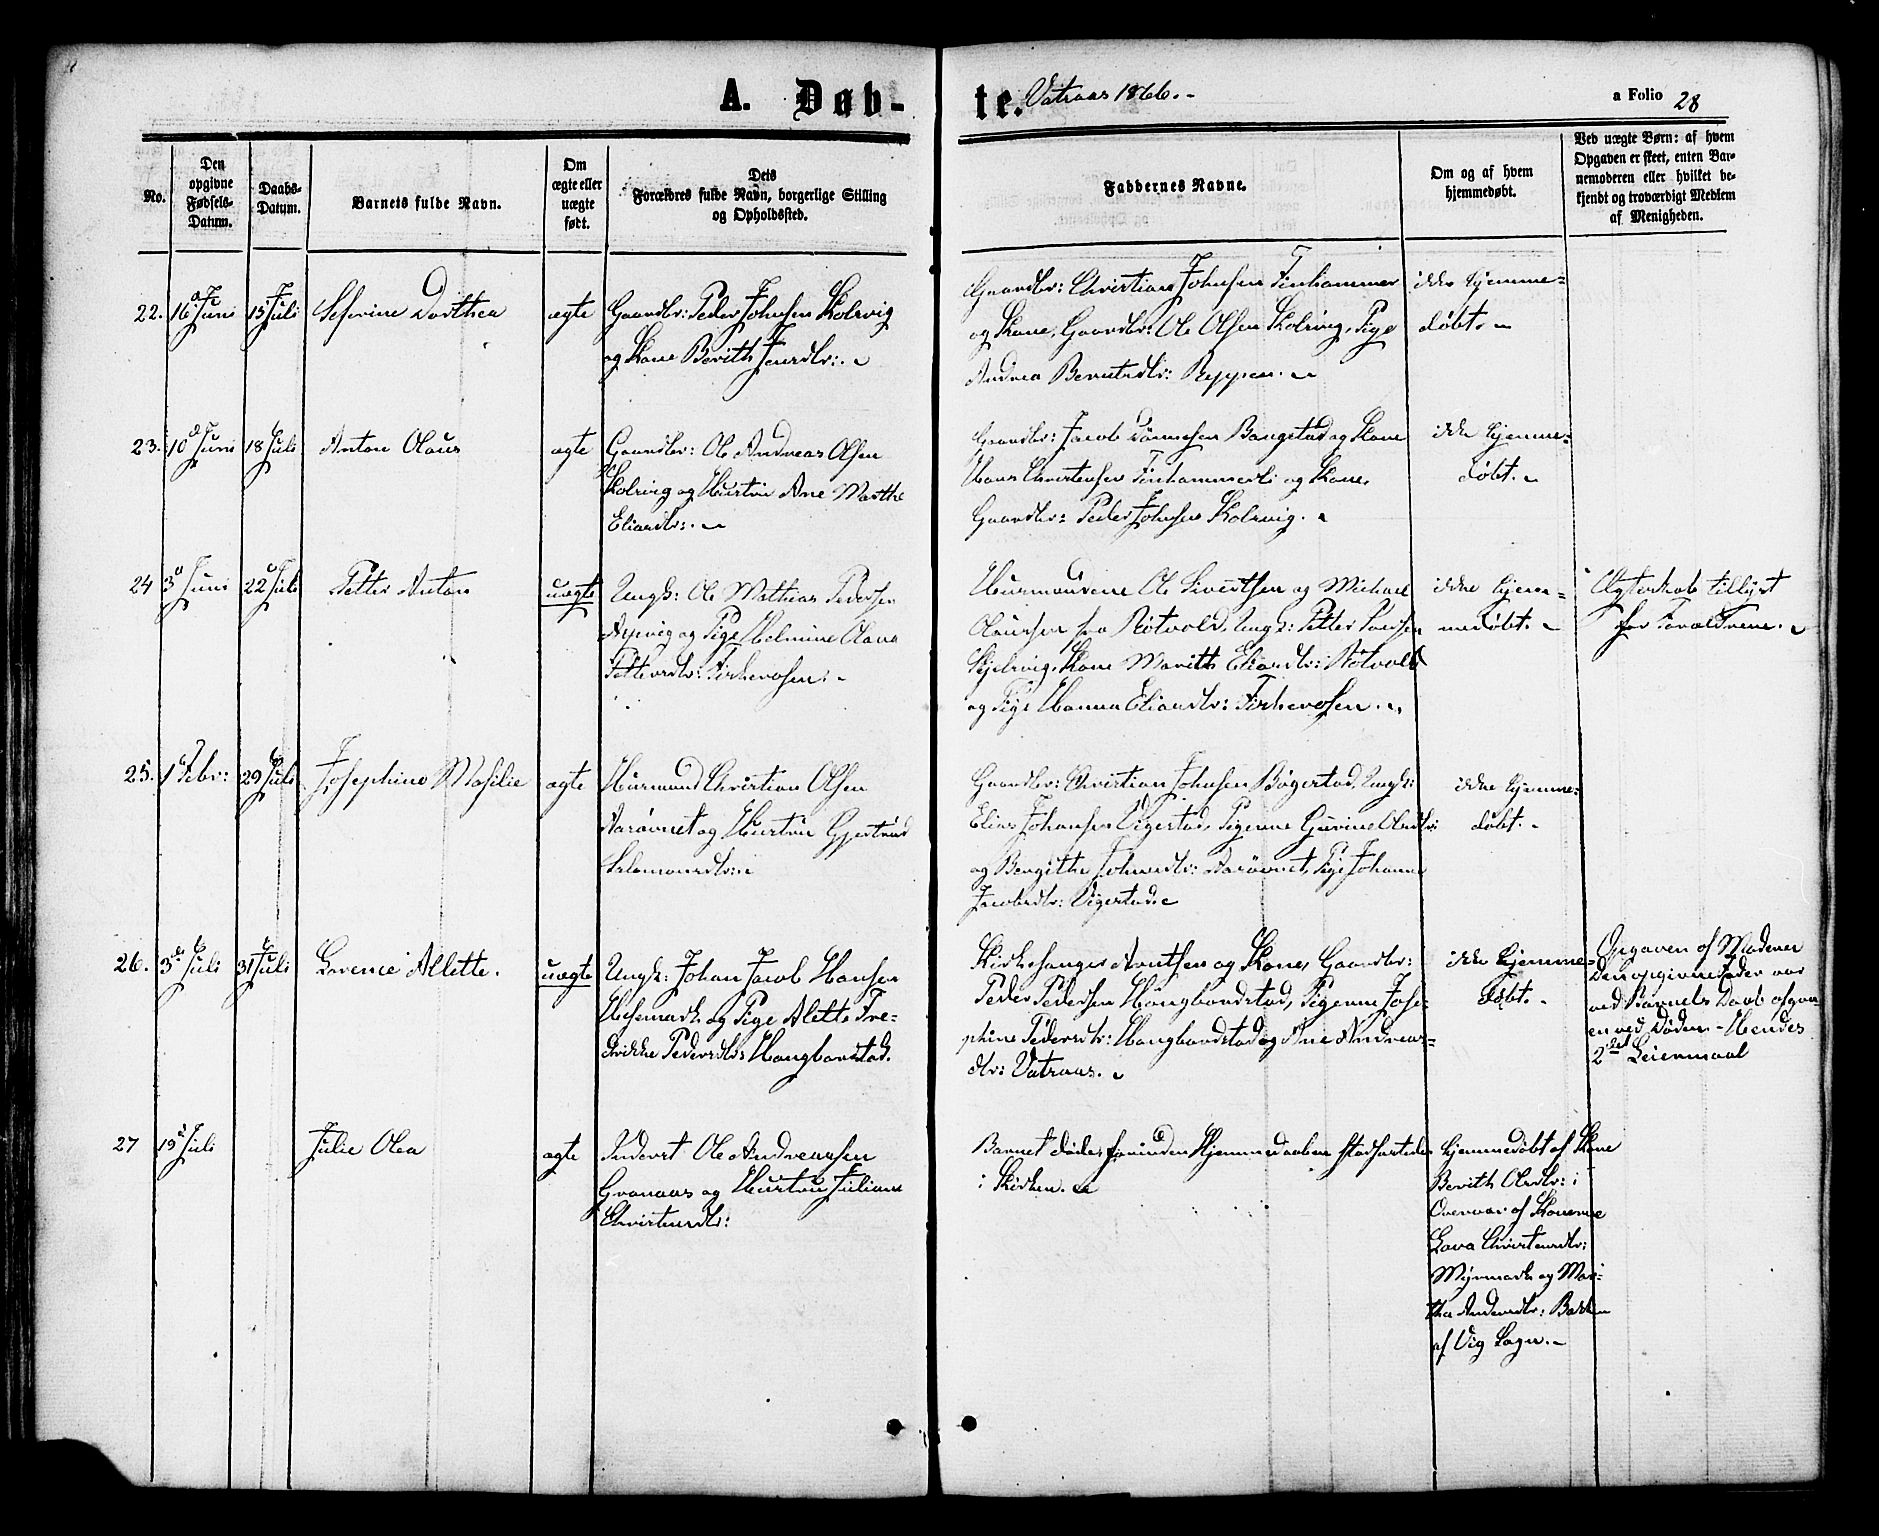 A. Døb-
te. Vatraas 1866.-
a Folio 28
No.
Den opgivne Fødsels-Datum.
Daabs-Datum.
Barnets fulde Navn.
Om ægte eller uægte født.
Dets
Forældres fulde Navn, borgerlige Stilling
og Opholdssted.
Faddernes Navne.
Om og af hvem
hjemmedøbt.
Ved uægte Børn: af hvem
Opgaven er skeet, enten Bar-
nemoderen eller hvilket be-
kjendt og troværdigt Medlem
af Menigheden.
22. 16 Juni 15 Juli Seferine Dorthea ægte Gaardbr: Peder Johnsen Kolvig
og Kone Berith Jensdtr:.
Gaardbr: Christian Johnsen Finhammer
og Kone, Gaardbr: Ole Olsen Kolvig, Pige
Andrea Berntsdtr: Reppen.
ikke hjemme-
døbt.
23. 10 Juni 18 Juli Anton Olaus ægte Gaardbr: Ole Andreas Olsen
Kolvig og Hustru Ane Marthe
Eliasdtr:.
Gaardbr: Jacob Tønnesen Bangstad og Kone
Hans Christensen Finhammerli og Kone,
Gaardbr: Peder Johnsen Kolvig.
ikke hjemme-
døbt.
24 3 Juni 22 Juli Petter Anton uægte Ungk: Ole Mathias Pedersen
og Pige Helmine Olava
Pettersdtr:
Huusmændene Ole Sivertsen og Michael
Olaussen fra Røtvold, Ungk: Petter
Kone Marith Eliasdtr: Røtvold
og Pige Hanna Eliasdtr:
ikke hjem-
medøbt.
Ægteskab tillyst
for Forældrene.
25. 1 Febr: 29 Juli Josephine Masilie ægte Huusmand Christian Olsen
Aarøvnet og Hustru Gjertrud
Salomonsdtr:
Gaardbr: Christian Johnsen Bøgestad, Ungk:
Elias Johansen Vigestad, Pigerne Gurine Olsdtr:
og Bergithe Johnsdtr: Aarøvnet, Pige Johanna
Jacobsdtr: Vigestad.
ikke hjemme-
døbt.
26. 3de Juli 31 Juli Lovense Allette. uægte Ungk: Johan Jacob Hansen
og Pige Alette Fre-
drikke Pedersdtr: Haugbardstad.
Kirkesanger Arntsen og Kone, Gaardbr:
Peder Pedersen Haugbardstad, Pigerne Jose-
phine Pedersdtr: Haugbardstad og Ane Andreas-
dtr: Vatraas.
ikke hjemme-
døbt.
Opgaven af Moderen
Den opgivne Fader var
ved Barnets Daab afgaa-
en ved Døden - Hendes
2det Leiermaal
27 19 Juli Julie Olea ægte Inderst Ole Andreassen
Granaas og Hustru Juliane
Christensdtr:
Barnet døde forinden Hjemmedaaben stadfæstedes
i Kirken.
hjemmedøbt af Kone
Berith Olsdtr: i
Overvær af Konerne
Lava Christensdtr:
Myrmark og Mar-
tha Andersdtr: Bakken
af Vig Sogn.